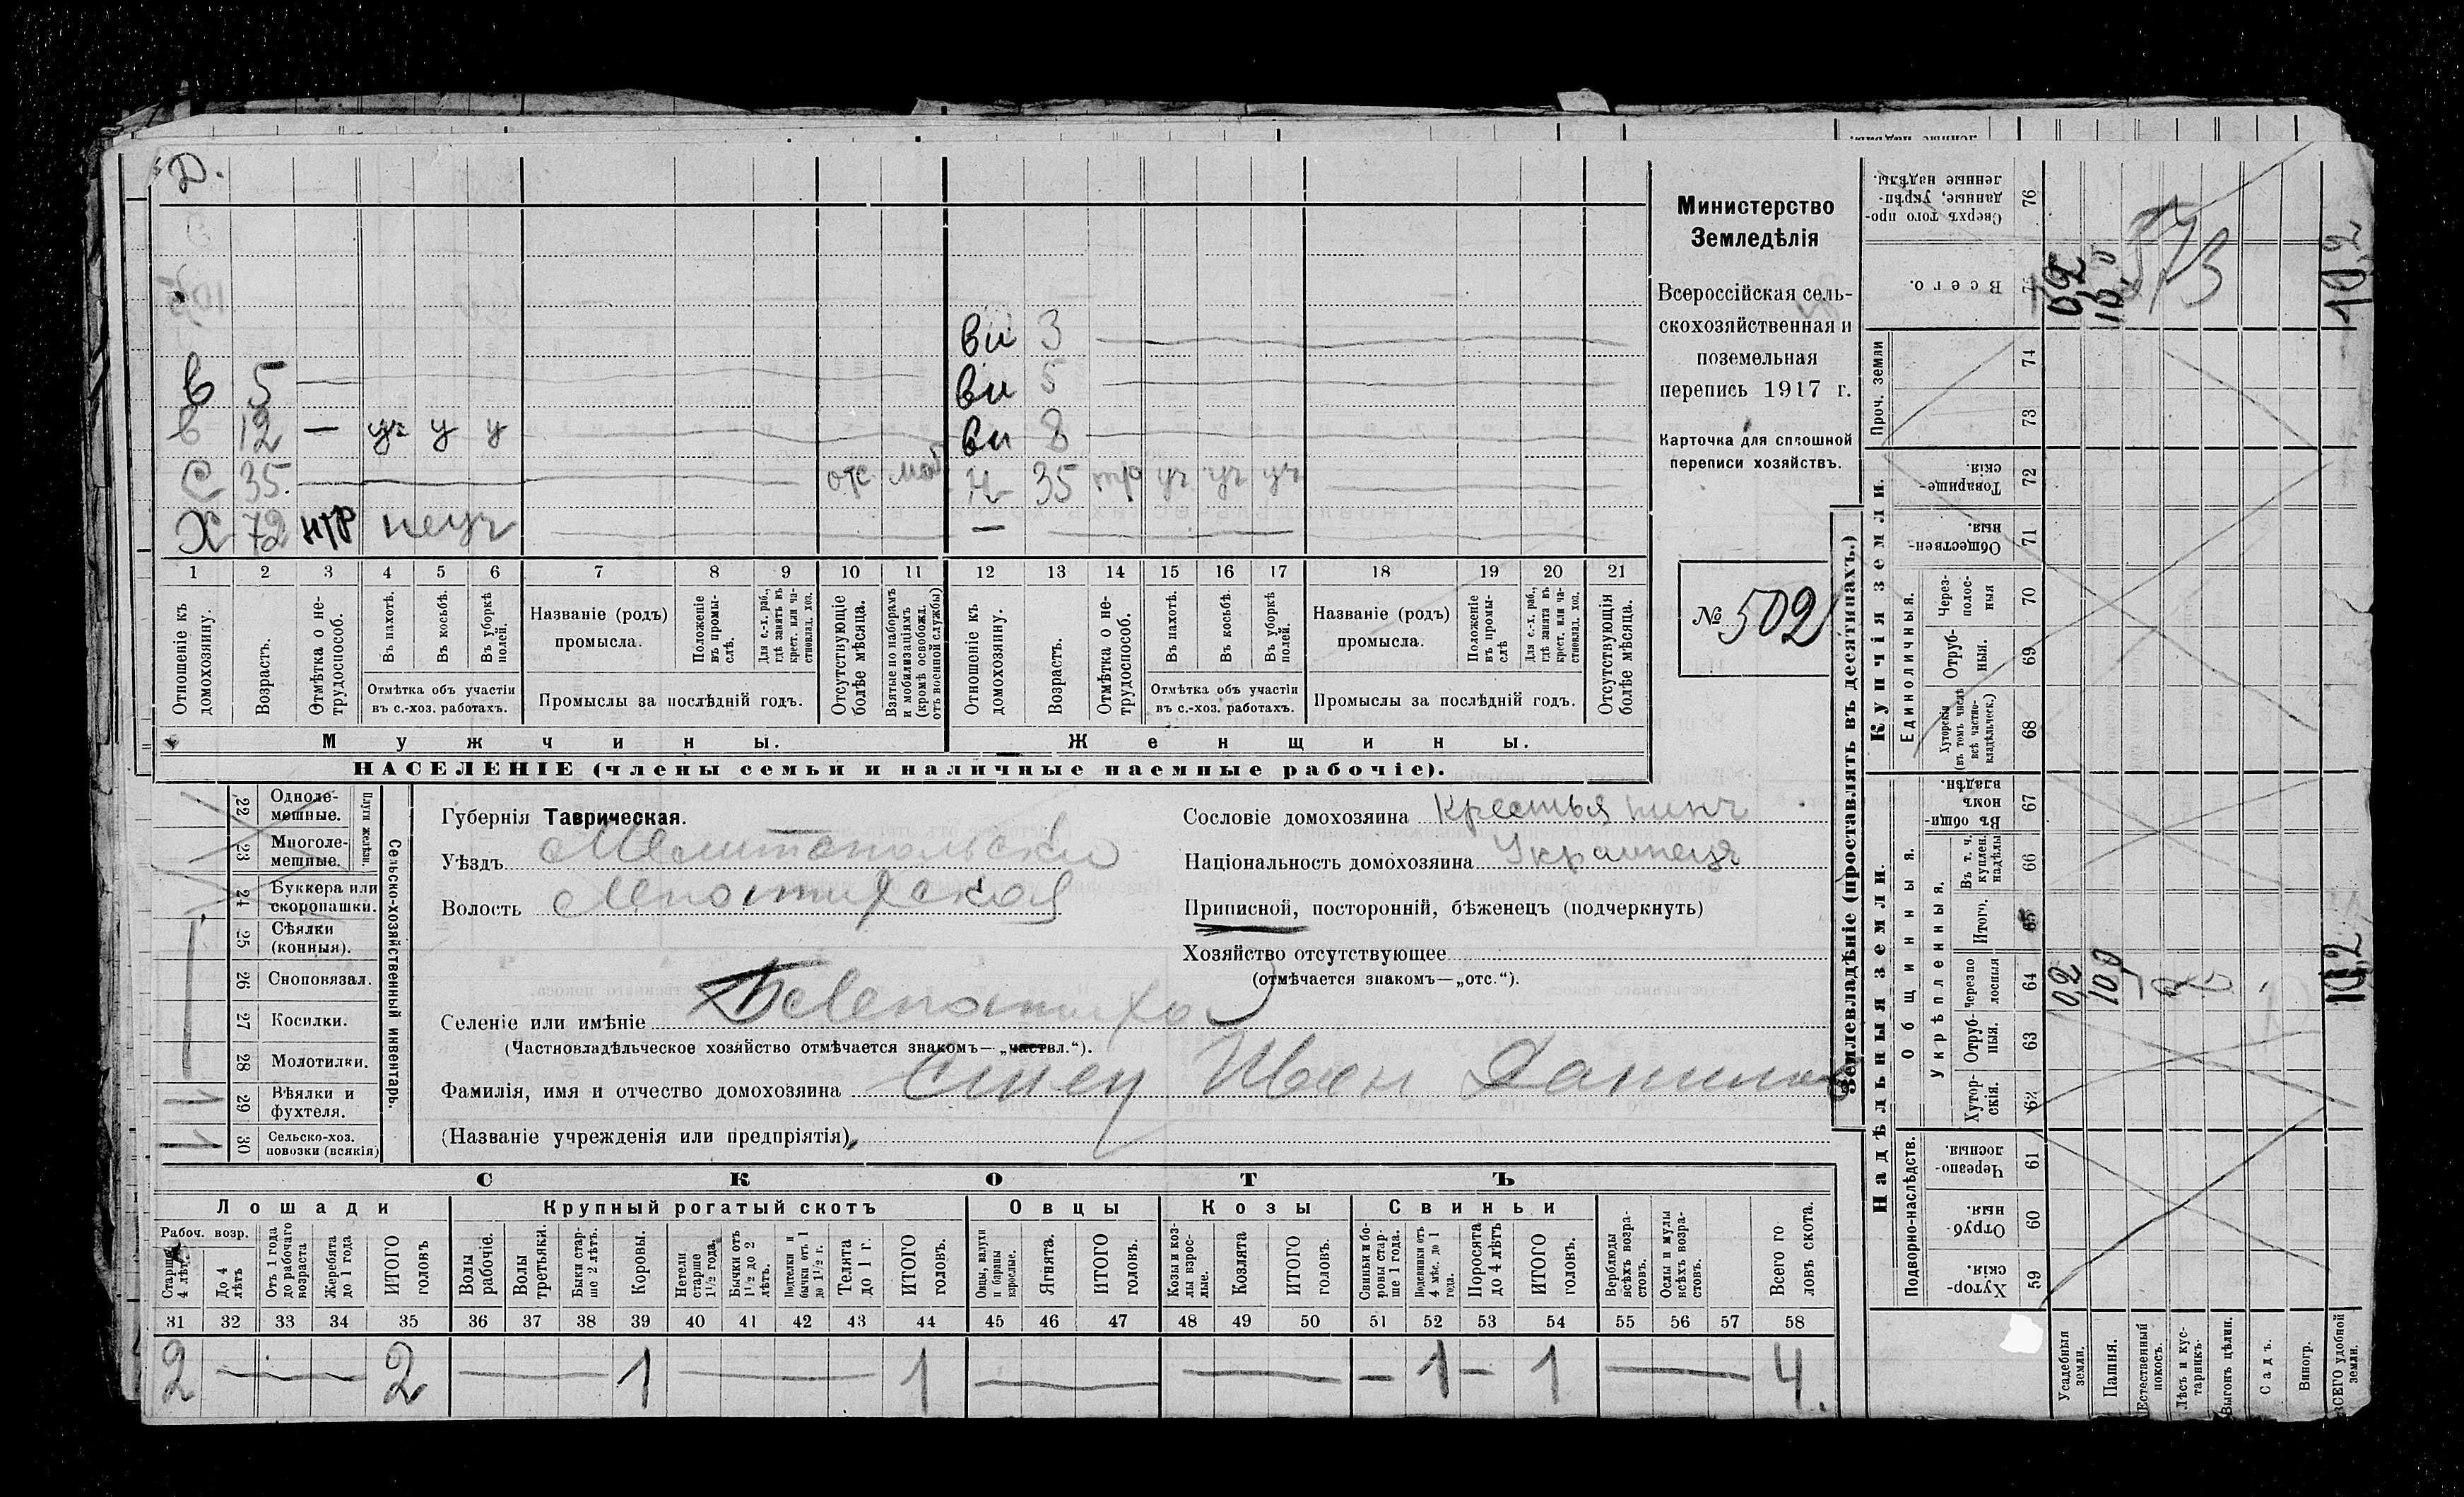 Д.
Министерство
Земледѣлія
Всероссійская сель-
скохозяйственная и
поземельная
перепись 1917 г.
Карточка для сплошной
переписи хозяйствъ.
№ 502
ви 3
в 5
ви 5
в 12 — уч у у
ви 8
С 35. отс моб
ж 35 тр уч уч уч
Х 72 нтр неуч
—
1 2 3 4 5 6 7 8 9 10 11 12 13 14 15 16 17 18 19 20 21
Отношеніе къ домохозяину.
Возрастъ.
Отмѣтка о не-трудоспособ.
Въ пахотѣ.
Въ косьбѣ.
Въ уборкѣ полей.
Отмѣтка объ участіи
въ с.-хоз. работахъ.
Названіе (родъ)
промысла.
Положеніе въ промы-слѣ.
Для с.-х. раб., гдѣ занятъ въ крест. или ча-стновлад. хоз.
Промыслы за послѣдній годъ.
Отсутствующіе болѣе мѣсяца.
Взятые по наборамъ и мобилизаціямъ (кромѣ освобожд. отъ военной службы)
Отношеніе къ домохозяину.
Возрастъ.
Отмѣтка о не-трудоспособ.
Въ пахотѣ.
Въ косьбѣ.
Въ уборкѣ полей.
Отмѣтка объ участіи
въ с.-хоз. работахъ.
Названіе (родъ)
промысла.
Положеніе въ промы-слѣ
Для с.-х. раб., гдѣ занята въ крест. или ча-стновлад. хоз.
Промыслы за послѣдній годъ.
Отсутствующія болѣе мѣсяца.
Мужчины.
Женщины.
НАСЕЛЕНІЕ (члены семьи и наличные наемные рабочіе).
Сельско-хозяйственный инвентарь.
Плуги желѣзн.
22 Одноле-мешные.
23 Многоле-мешные.
24 Буккера или скоропашки.
25 Сѣялки (конныя).
26 Сноповязал.
27 Косилки.
28 Молотилки.
29 Вѣялки и фухтеля. 1
30 Сельско-хоз. повозки (всякія) 1
Губернія Таврическая.
Уѣздъ Мелитопольскій
Волость
Селеніе или имѣніе
(Частновладѣльческое хозяйство отмѣчается знакомъ—„частвл.“).
Фамилія, имя и отчество домохозяина Иван Данилов
(Названіе учрежденія или предпріятія)
Сословіе домохозяина Крестьянинъ
Національность домохозяина Украинецъ
Приписной, посторонній, бѣженецъ (подчеркнуть)
Хозяйство отсутствующее
(отмѣчается знакомъ—„отс.“).
СКОТЪ
Лошади
Крупный рогатый скотъ
Овцы
Козы
Свиньи
Рабоч. возр.
Старше 4 лѣтъ
До 4 лѣтъ
Отъ 1 года до рабочаго возраста
Жеребята до 1 года
ИТОГО головъ
Волы рабочіе.
Волы третьяки.
Быки стар-ше 2 лѣтъ.
Коровы.
Нетели старше 1½ года.
Бычки отъ 1½ до 2 лѣтъ.
Подтелки и бычки отъ 1 до 1½ г.
Телята до 1 г.
ИТОГО головъ.
Овцы, валухи и бараны взрослые.
Ягнята.
ИТОГО головъ.
Козы и коз-лы взрос-лые.
Козлята
ИТОГО головъ.
Свиньи и бо-ровы стар-ше 1 года.
Подсвинки отъ 4 мѣс. до 1 года.
Поросята до 4 лѣтъ
ИТОГО головъ.
Верблюды всѣхъ возра-стовъ.
Ослы и мулы всѣхъ возра-стовъ.
Всего го-ловъ скота.
31 32 33 34 35 36 37 38 39 40 41 42 43 44 45 46 47 48 49 50 51 52 53 54 55 56 57 58
2 — 2 — 1 — 1 — — — 1 — 1 — 4.
Землевладѣніе (проставлять въ десятинахъ.)
Надѣльныя земли.
Купчія земли.
Проч. земли
Подворно-наслѣдств.
Общинныя.
Укрѣпленныя.
Единоличныя.
59 Хутор-скія.
60 Отруб-ныя.
61 Черезпо-лосныя
62 Хутор-скія.
63 Отруб-ныя.
64 Черезпо-лосныя
65 Итого.
66 Въ т. ч. куплен. надѣлы
67 Въ общин-номъ владѣн.
68 Хуторскія (въ томъ числѣ всѣ частно-владѣльческ.)
69 Отруб-ныя.
70 Через-полос-ныя
71 Обществен-ныя.
72 Товарище-скія.
73
74
75 Всего.
76 Сверхъ того про-данные, укрѣп-ленные надѣлы.
Усадебныя земли.
Пашня.
Естественный покосъ.
Лѣсъ и кус-тарникъ.
Выгонъ цѣлин.
Садъ.
Виногр.
ВСЕГО удобной земли.
0,2 10,0 10,2
0,2 10,0 10,2